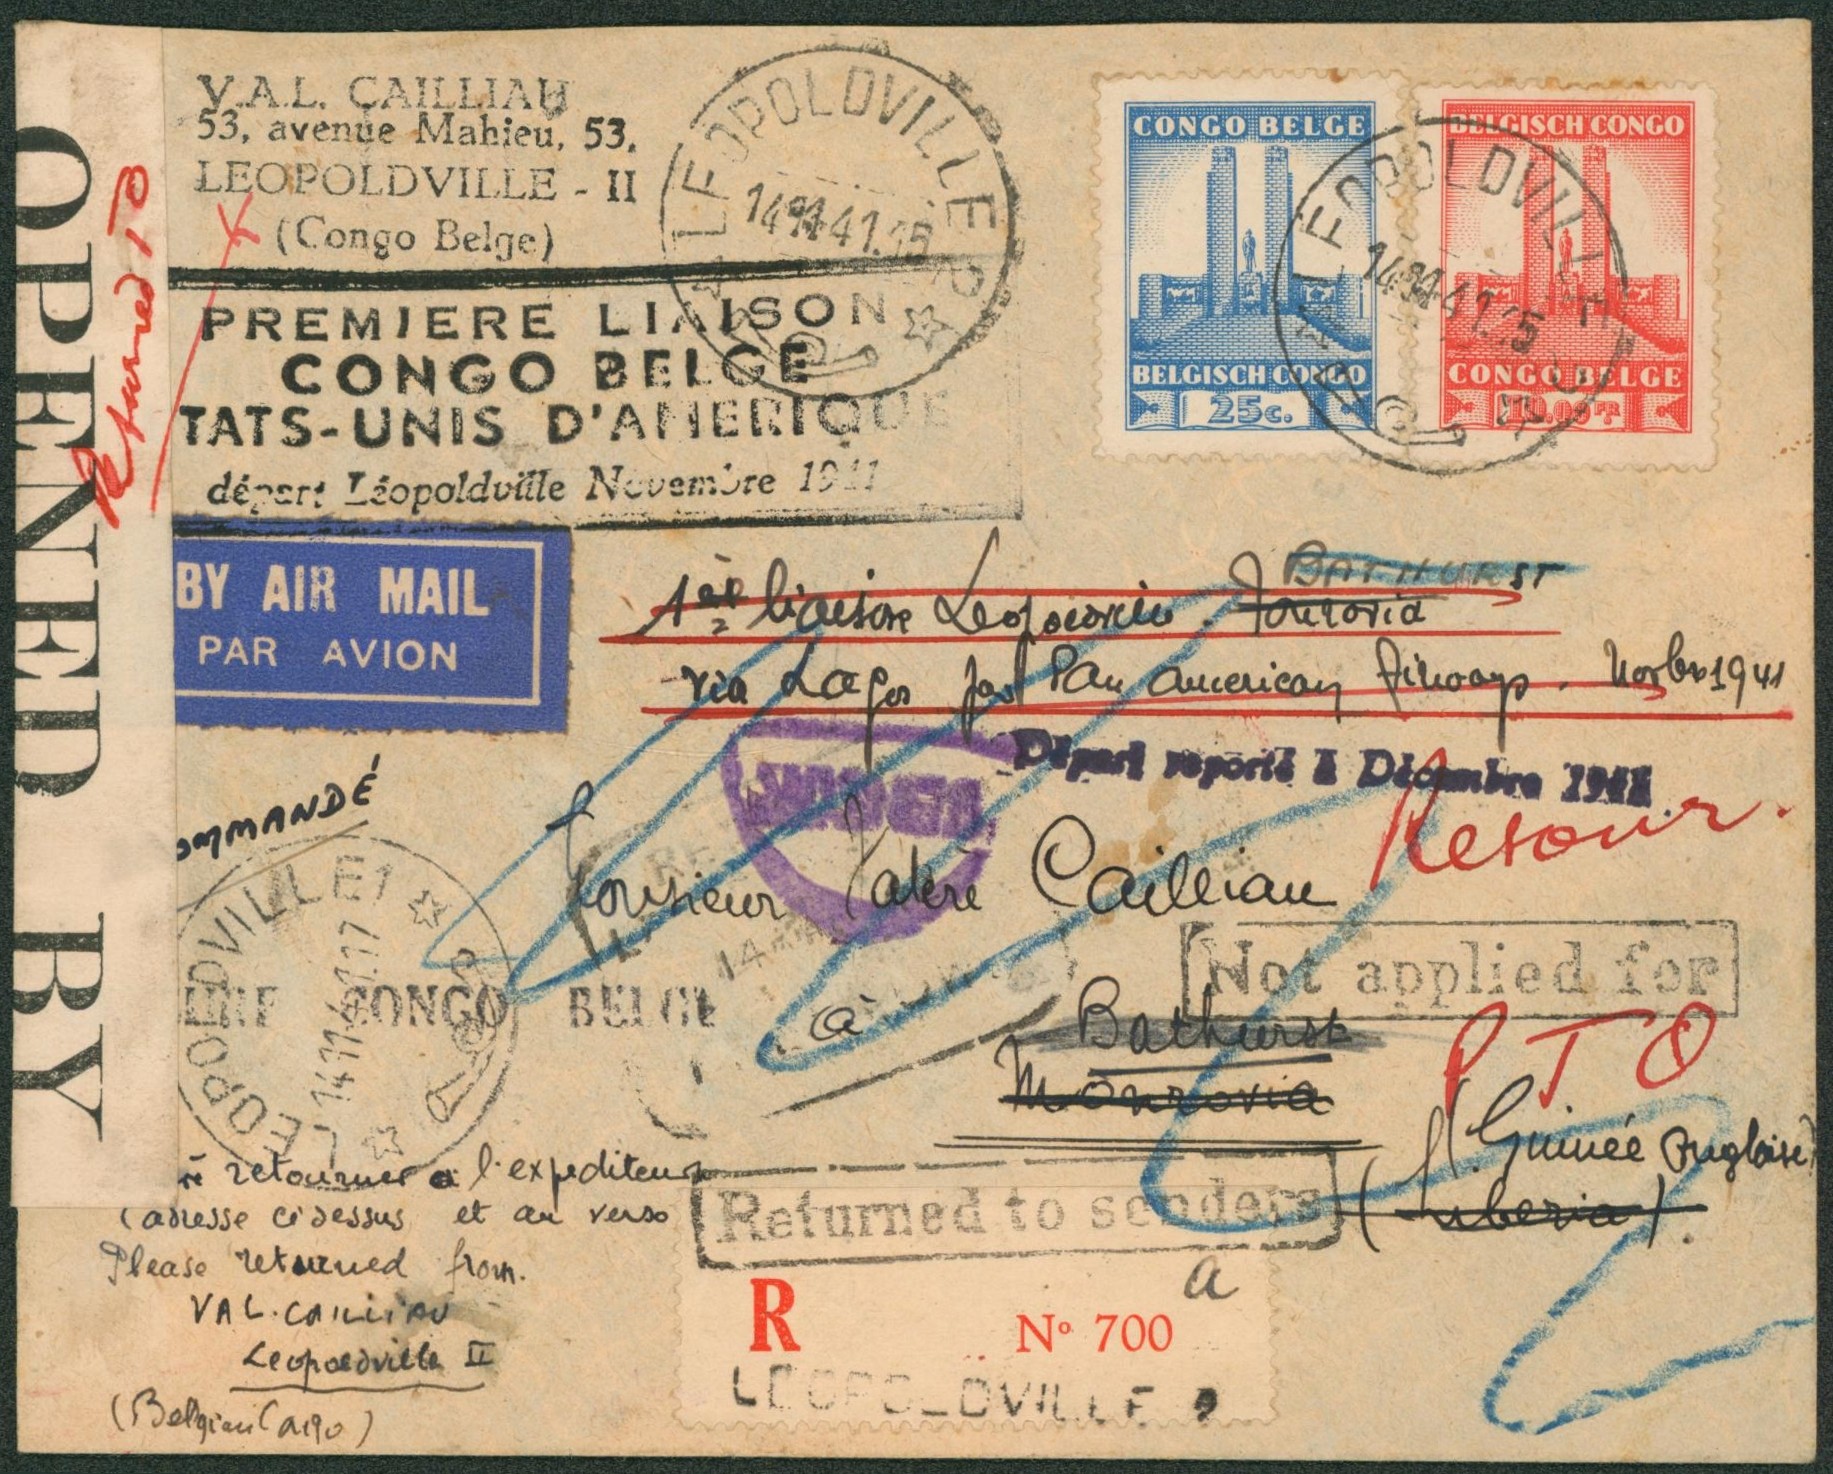 V.A.L. CAILLIAU
53, avenue Mahieu, 53,
LEOPOLDVILLE - II
(Congo Belge)
LEOPOLDVILLE
CONGO BELGE
BELGISCH CONGO
25c.
BELGISCH CONGO
CONGO BELGE
10.00 FR
LEOPOLDVILLE
OPENED BY
Returned TO
PREMIERE LIAISON
CONGO BELGE
TATS-UNIS D'AMERIQUE
départ Léopoldville Novembre 1941
BY AIR MAIL
PAR AVION
BATHURST
1ère liaison Leopoldville - Monrovia
via Lagos par Pan American Airways. Novbre 1941
Départ reporté à Décembre 1941
Retour.
OMMANDÉ
Monsieur Valère Cailliau
LEOPOLDVILLE 1
14.11.41.17
CONGO BELGE
à
Not applied for
Bathurst
Monrovia
PTO
(Guinée Anglaise)
(Liberia)
à retourner à l'expediteur
(adresse ci dessus et au verso
Please returned from.
VAL. CAILLIAU
Leopoldville II
(Belgian Congo)
Returned to sender
a
R No 700
LEOPOLDVILLE 2